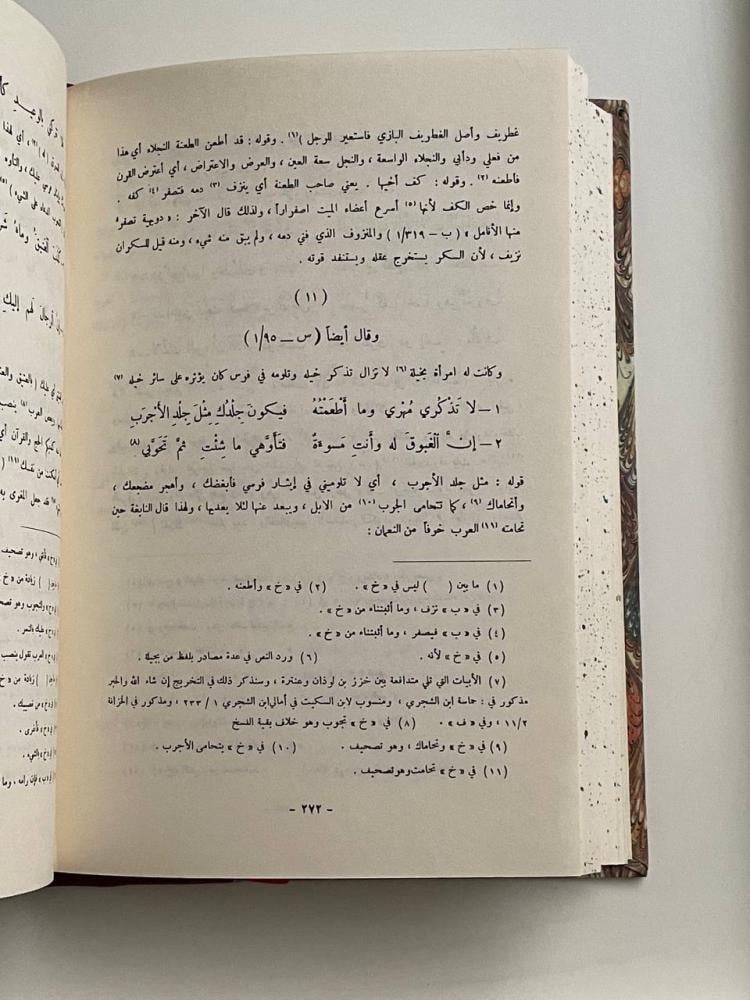 غطريف وأصل الغطريف البازي فاستعير للرجل )(١) . وقوله : قد أطعن الطعنة النجلاء أي هذا
من فعلي ودأبي والنجلاء الواسعة ، والنجل سعة العين ، والعرض والاعتراض ، أي أعترض القرن
فأطعنه (٢) . وقوله : كف أخيها . يعني صاحب الطعنة أي ينزف (٣) دمه فتصفر (٤) كفه .
وإنما خص الكف لأنها (٥) أسرع أعضاء الميت اصفراراً ، ولذلك قال الآخر : « دويهية تصفر
منها الأنامل » ( ب – ١/٣١٩ ) والمنزوف الذي فني دمه ، ولم يبق منه شيء ، ومنه قيل للسكران
نزيف ، لأن السكر يستخرج عقله ويستنفد قوته .
( ١١ )
وقال أيضاً ( س – ١/٩٥ )
وكانت له امرأة بخيلة (٦) لا تزال تذكر خيله وتلومه في فرس كان يؤثره على سائر خيله (٧)
١ – لا تَذْكُري مُهْري وما أَطْعَمْتُهُ فيكونَ جِلْدُكِ مِثْلَ جِلْدِ الأَجْرَبِ
٢ – إنَّ الْغَبوقَ له وأنتِ مَسوءَةٌ فَتَأَوَّهي ما شِئْتِ ثمَّ تَحَوَّبي (٨)
قوله : مثل جلد الأجرب ، أي لا تلوميني في إيثار فرسي فأبغضك ، وأهجر مضجعك ،
وأتحاماك (٩) ، كما تتحامى الجرب (١٠) من الابل ، ويبعد عنها لئلا يعديها ، ولهذا قال النابغة حين
تحامته (١١) العرب خوفاً من النعمان :
(١) ما بين ( ) ليس في « خ » . (٢) في « خ » وأطعنه .
(٣) في « ب » نزف ، وما أثبتناه من « خ » .
(٤) في « ب » فيصفر ، وما أثبتناه من « خ » .
(٥) في « خ » لأنه . (٦) ورد النص في عدة مصادر بلفظ من بجيلة .
(٧) الأبيات التي تلي متدافعة بين خزز بن لوذان وعنترة ، وسنذكر ذلك في التخريج إن شاء الله والخبر
مذكور في : حماسة ابن الشجري ، ومنسوب لابن السكيت في أمالي ابن الشجري ١ / ٢٣٣ ، ومذكور في الخزانة
١١/٢ ، وفي « ف » . (٨) في « خ » تجوب وهو خلاف بقية النسخ
(٩) في « خ » ونحاماك ، وهو تصحيف . (١٠) في « خ » يتحامى الأجرب .
(١١) في « خ » تحامت وهو تصحيف .
– ٢٧٢ –